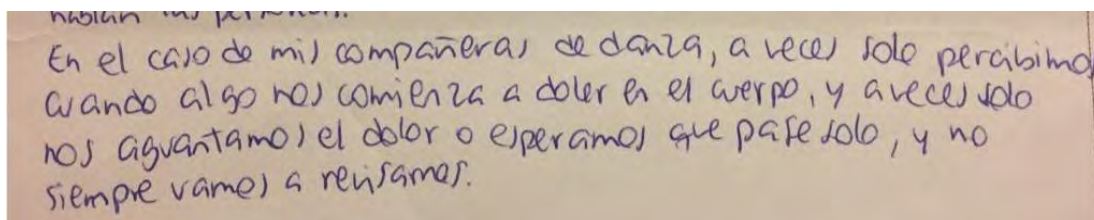 En el caso de mis compañeras de danza, a veces solo percibimos
cuando algo nos comienza a doler en el cuerpo, y a veces solo
nos aguantamos el dolor o esperamos que pase solo, y no
siempre vamos a revisarnos.